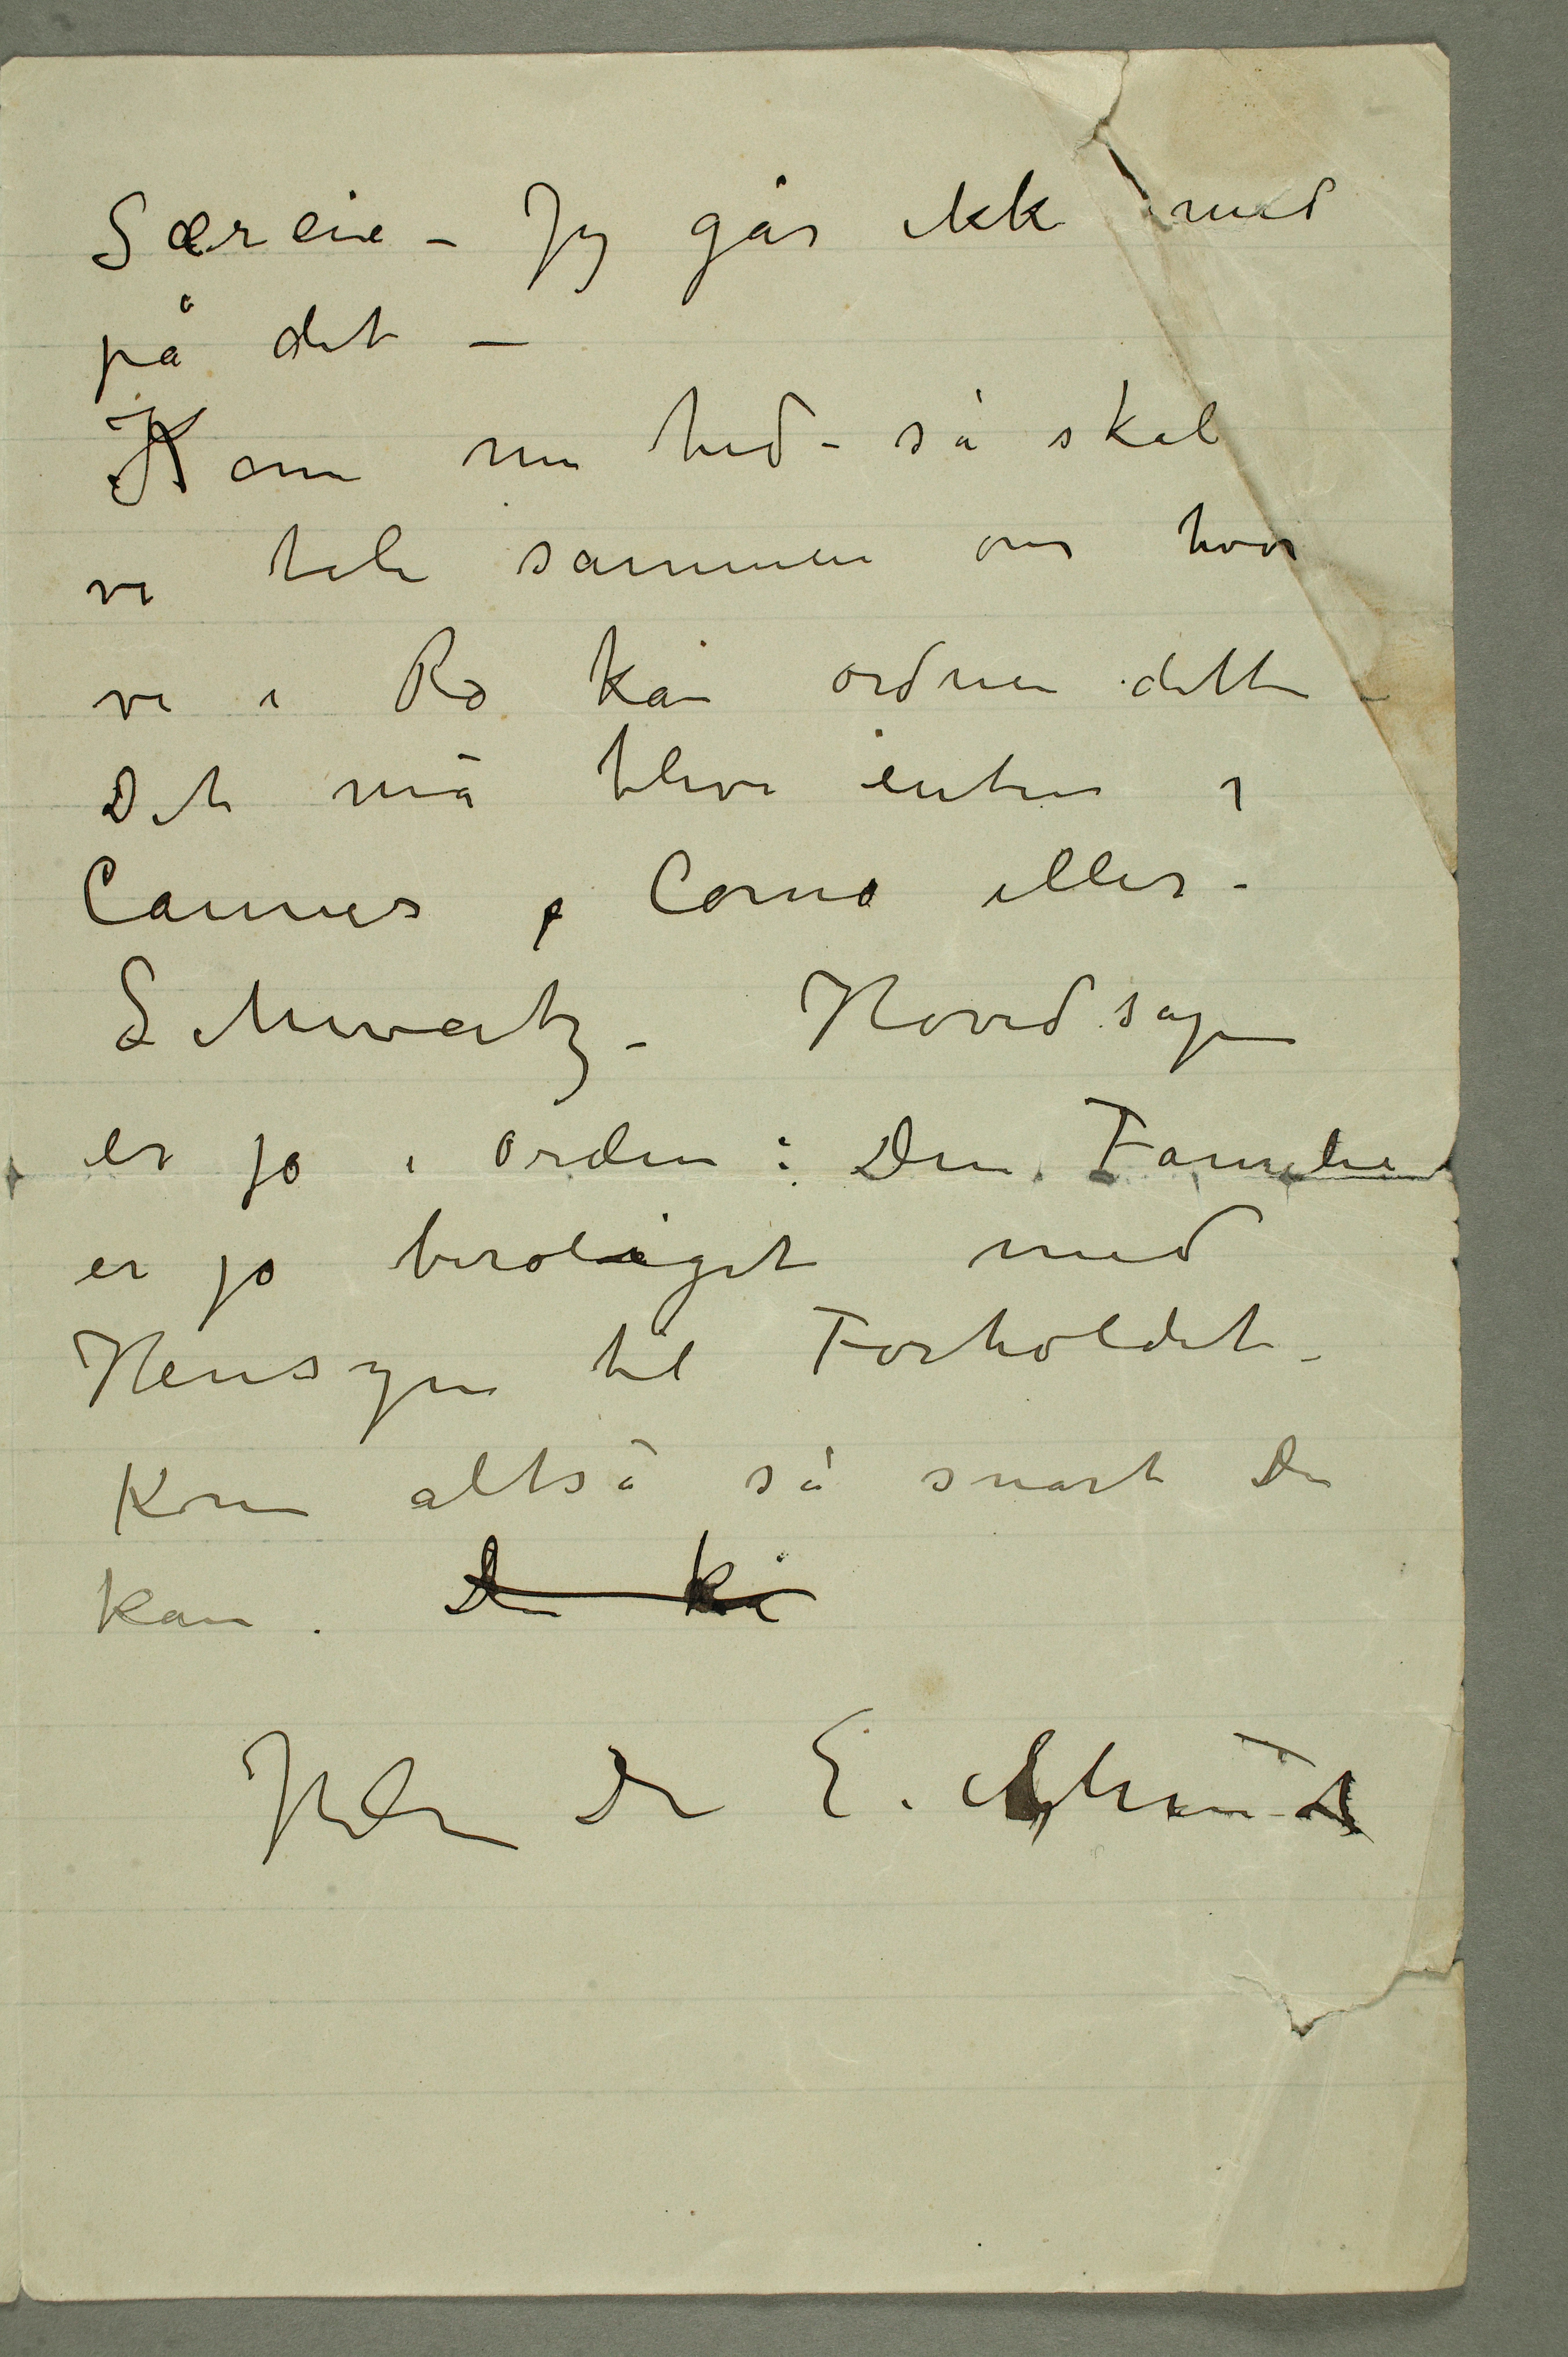 Særeie – Jeg går ikke med
på det –
Kom nu hid – så skal
vi tale sammen om hvor
vi i Ro kan ordne dette –
Det må blive enten i
Cannes, Como eller –
Schweitz – Hovedsagen
er jo i orden : Din Familie
er jo beroliget med
Hensyn til Forholdet –
Kom altså så snart Du
kan . Du ka
Hilsen Din E. Munch